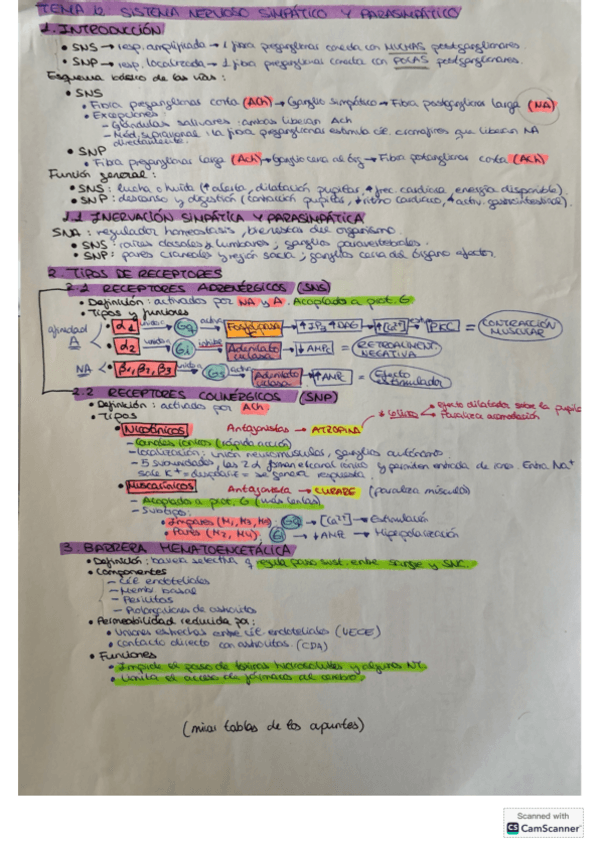 TEMA 12. SISTEMA NERVOSO SIMPÁTICO Y PARASIMPÁTICO
1. INTRODUCCIÓN
• SNS → resp. amplificada → 1 fibra preganglionar conecta con MUCHAS postganglionares.
• SNP → resp. localizada → 1 fibra preganglionar conecta con POCAS postganglionares.
Esquema básico de las vías:
• SNS
• Fibra preganglionar corta (ACh) → Ganglio simpático → Fibra postganglionar larga (NA)
• Excepciones:
- Glándulas salivares: ambas liberan Ach
- Méd. suprarrenal: la fibra preganglionar estimula cél. cromafines que liberan NA
directamente.
• SNP
• Fibra preganglionar larga (ACh) → Ganglio cerca al órg → Fibra postganglionar corta (ACh)
Función general:
• SNS: lucha o huida (↑ alerta, dilatación pupilar, ↑ frec. cardiaca, energía disponible).
• SNP: descanso y digestión (contracción pupilar, ↓ ritmo cardiaco, ↑ activ. gastrointestinal).
1.1 INERVACIÓN SIMPÁTICA Y PARASIMPÁTICA
SNA: regulador homeostasis, bienestar del organismo.
• SNS: raíces dorsales y lumbares; ganglios paravertebrales.
• SNP: pares craneales y región sacra; ganglios cerca del órgano efector.
2. TIPOS DE RECEPTORES
2.1 RECEPTORES ADRENÉRGICOS (SNS)
• Definición: activados por NA y A. Acoplado a prot. G
• Tipos y funciones
afinidad A
α1 unido Gq activa Fosfolipasa → ↑IP3 ↑DAG → ↑[Ca2+] → PKC = CONTRACCIÓN MUSCULAR
α2 unido Gi inhibe Adenilato ciclasa → ↓AMPc = RETROALIMENT. NEGATIVA
NA β1, β2, β3 unido Gs activa Adenilato ciclasa → ↑AMPc = Efecto estimulador
2.2 RECEPTORES COLINÉRGICOS (SNP)
• Definición: activados por ACh
• Tipos
efecto dilatador sobre la pupila
• Nicotínicos Antagonistas → ATROPINA
Paraliza acomodación
- Canales iónicos (rápida acción)
- Localización: unión neuromuscular, ganglios autónomo.
- 5 subunidades, las 2 α forman el canal iónico y permiten entrada de iones. Entra Na+
sale K+ = despolariz = se genera respuesta.
• Muscarínicos Antagonista → CURARE (paraliza músculos)
- Acoplados a prot. G (más lentos)
- Subtipos:
• Impares (M1, M3, M5) Gq → [Ca2+] → Estimulación
• Pares (M2, M4) Gi → ↓AMPc → Hiperpolarización
3. BARRERA HEMATOENCETÁLICA
• Definición: barrera selectiva q regula paso sust. entre sangre y SNC.
• Componentes
- Cél endoteliales
- Membr. basal
- Pericitos
- Prolongaciones de astrocitos
• Permeabilidad reducida por:
• Uniones estrechas entre cél. endoteliales (UECE)
• Contacto directo con astrocitos. (CDA)
• Funciones
• Impide el paso de toxinas hidrosolubles y algunos NT.
• Limita el acceso de fármacos al cerebro.
(mirar tablas de los apuntes)
Scanned with
CS CamScanner